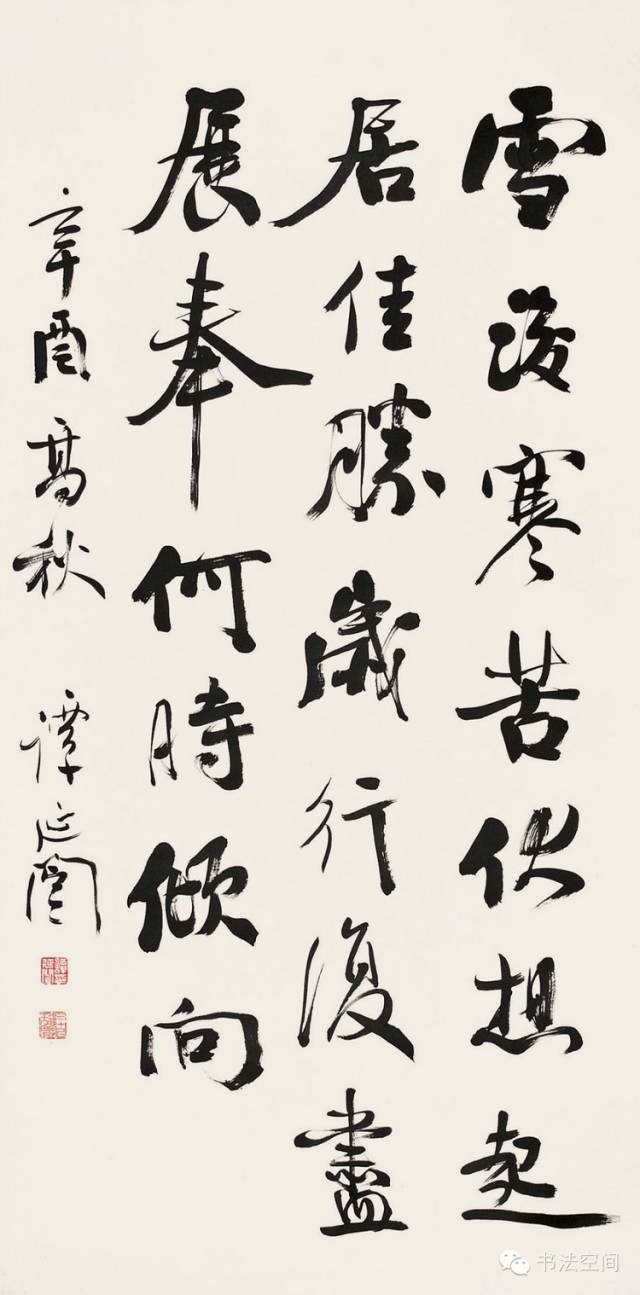 雪後寒苦伏想起
居佳勝歲行復盡
展奉何時傾向
辛酉高秋 譚延闓
书法空间